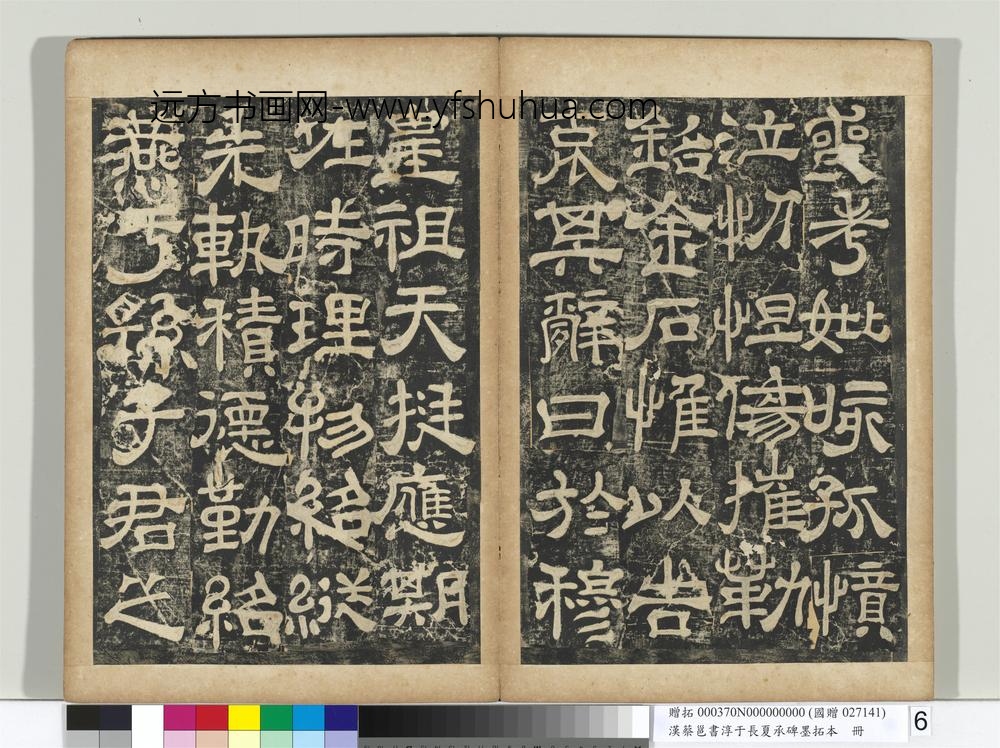 远方书画网-www.yfshuhua.com
喪考妣咏孤憤
泣忉怛傷摧勒
銘金石惟以告
哀其辭曰於穆
皇祖天挺應期
佐時理物紹縱
先軌積德勤紹
燕于孫子君之
贈拓 000370N000000000 (國贈 027141)
漢蔡邕書淳于長夏承碑墨拓本 冊
6